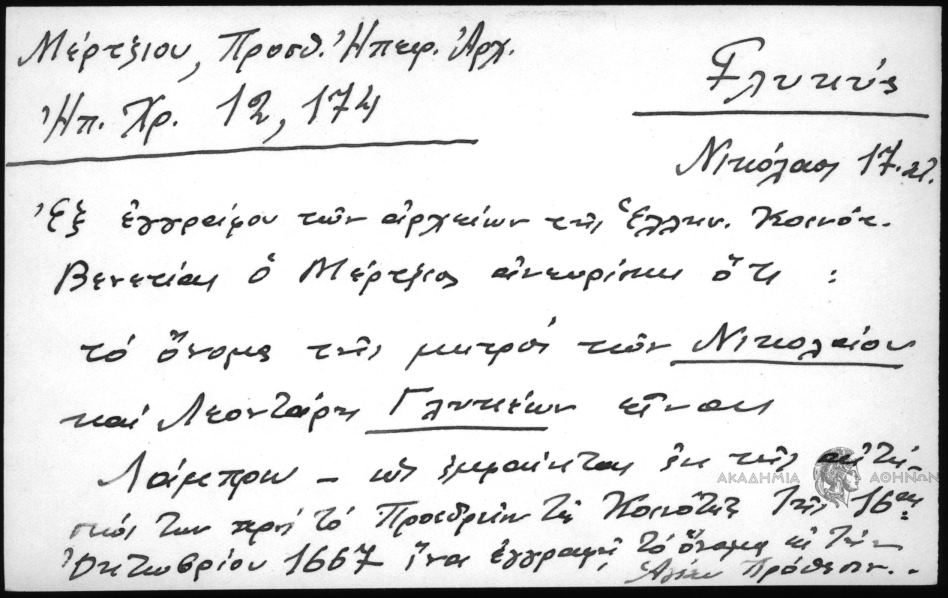 Μέρτζιου, Προσθ. Ἠπειρ. Ἀρχ.
Ἠπ. Χρ. 12, 174
Γλυκύς
Νικόλαος 17. αἰ.
Ἐξ ἐγγράφου τῶν ἀρχείων τῆς Ἑλλην. Κοινότ.
Βενετίας ὁ Μέρτζιος ἀνευρίσκει ὅτι :
τό ὄνομα τῆς μητρός τῶν Νικολάου
καί Λεοντάρη Γλυκέων εἶναι
Λάμπρω – ὡς ἐμφαίνεται ἐκ τῆς αἰτή-
σεώς των πρός τό Προεδρεῖον τῆς Κοινότητος τῆς 16ης
Ὀκτωβρίου 1667 ἵνα ἐγγραφῇ τό ὄνομα εἰς τήν
Ἁγίαν Πρόθεσιν. -
ΑΚΑΔΗΜΙΑ ΑΘΗΝΩΝ